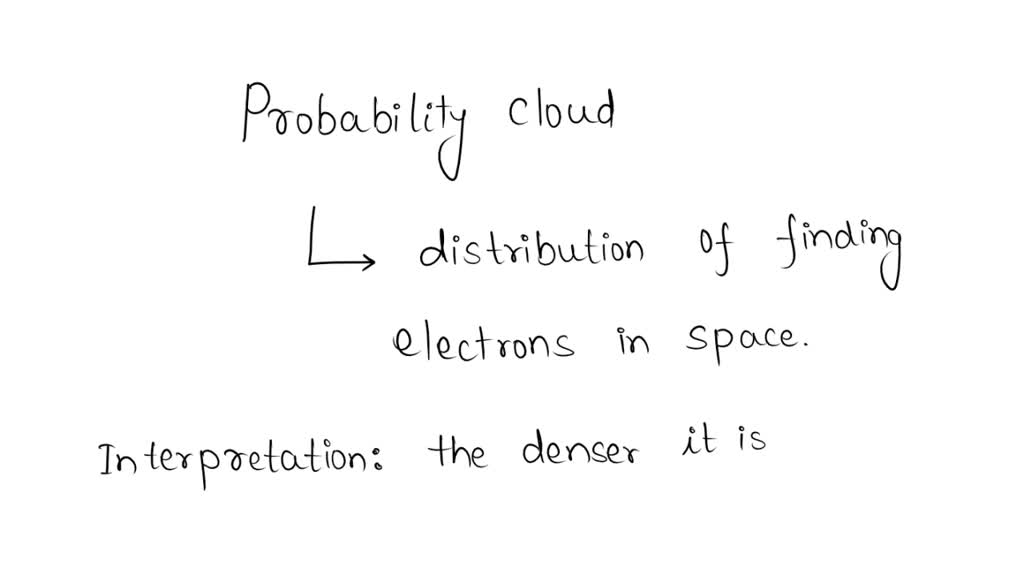 Probability cloud
distribution of finding
electrons in space.
Interpretation: the denser it is